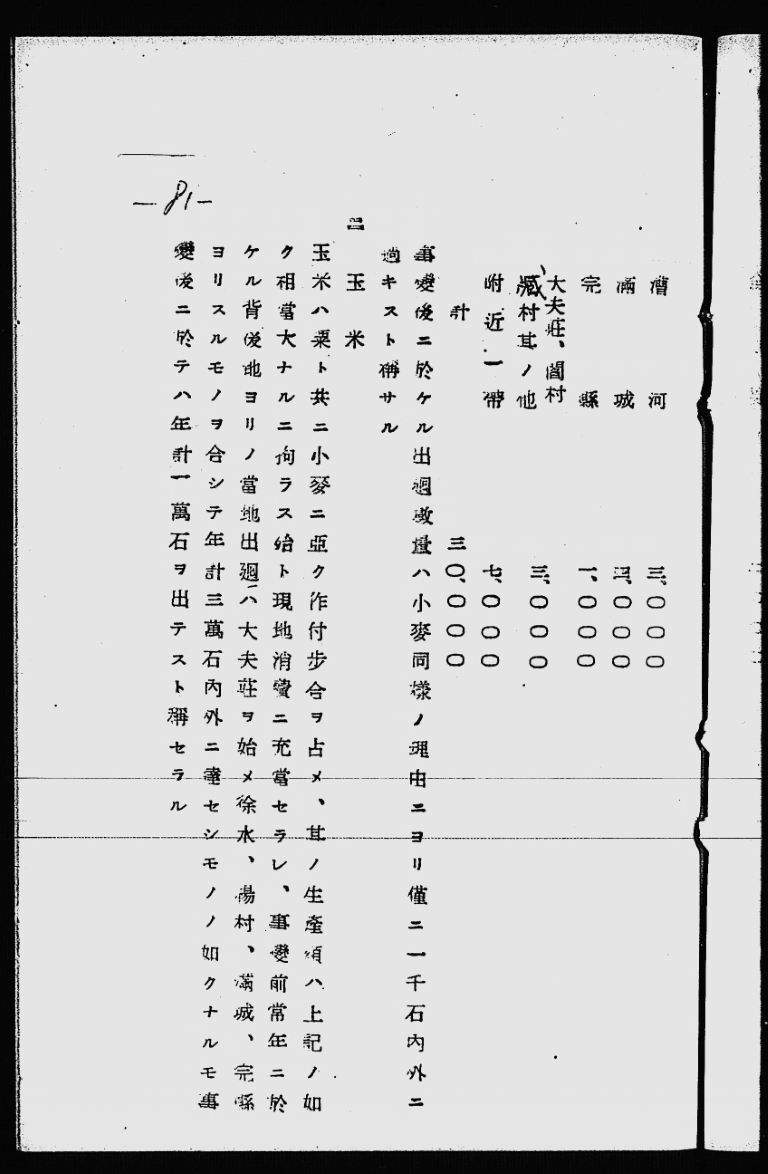 漕河 三、〇〇〇
滿城 三、〇〇〇
完縣 一、〇〇〇
大夫莊、閻村
臧村其ノ他 三、〇〇〇
附近一帶 七、〇〇〇
計 三〇、〇〇〇
事變後ニ於ケル出廻數量ハ小麥同樣ノ理由ニヨリ僅ニ一千石內外ニ
過キスト稱サル
二 玉米
玉米ハ粟ト共ニ小麥ニ亞ク作付步合ヲ占メ、其ノ生產額ハ上記ノ如
ク相當大ナルニ拘ラス始ト現地消費ニ充當セラレ、事變前常年ニ於
ケル背後地ヨリノ當地出廻ハ大夫莊ヲ始メ徐水、湯村、滿城、完縣
ヨリスルモノヲ合シテ年計三萬石內外ニ達セシモノノ如クナルモ事
變後ニ於テハ年計一萬石ヲ出テスト稱セラル
—81—